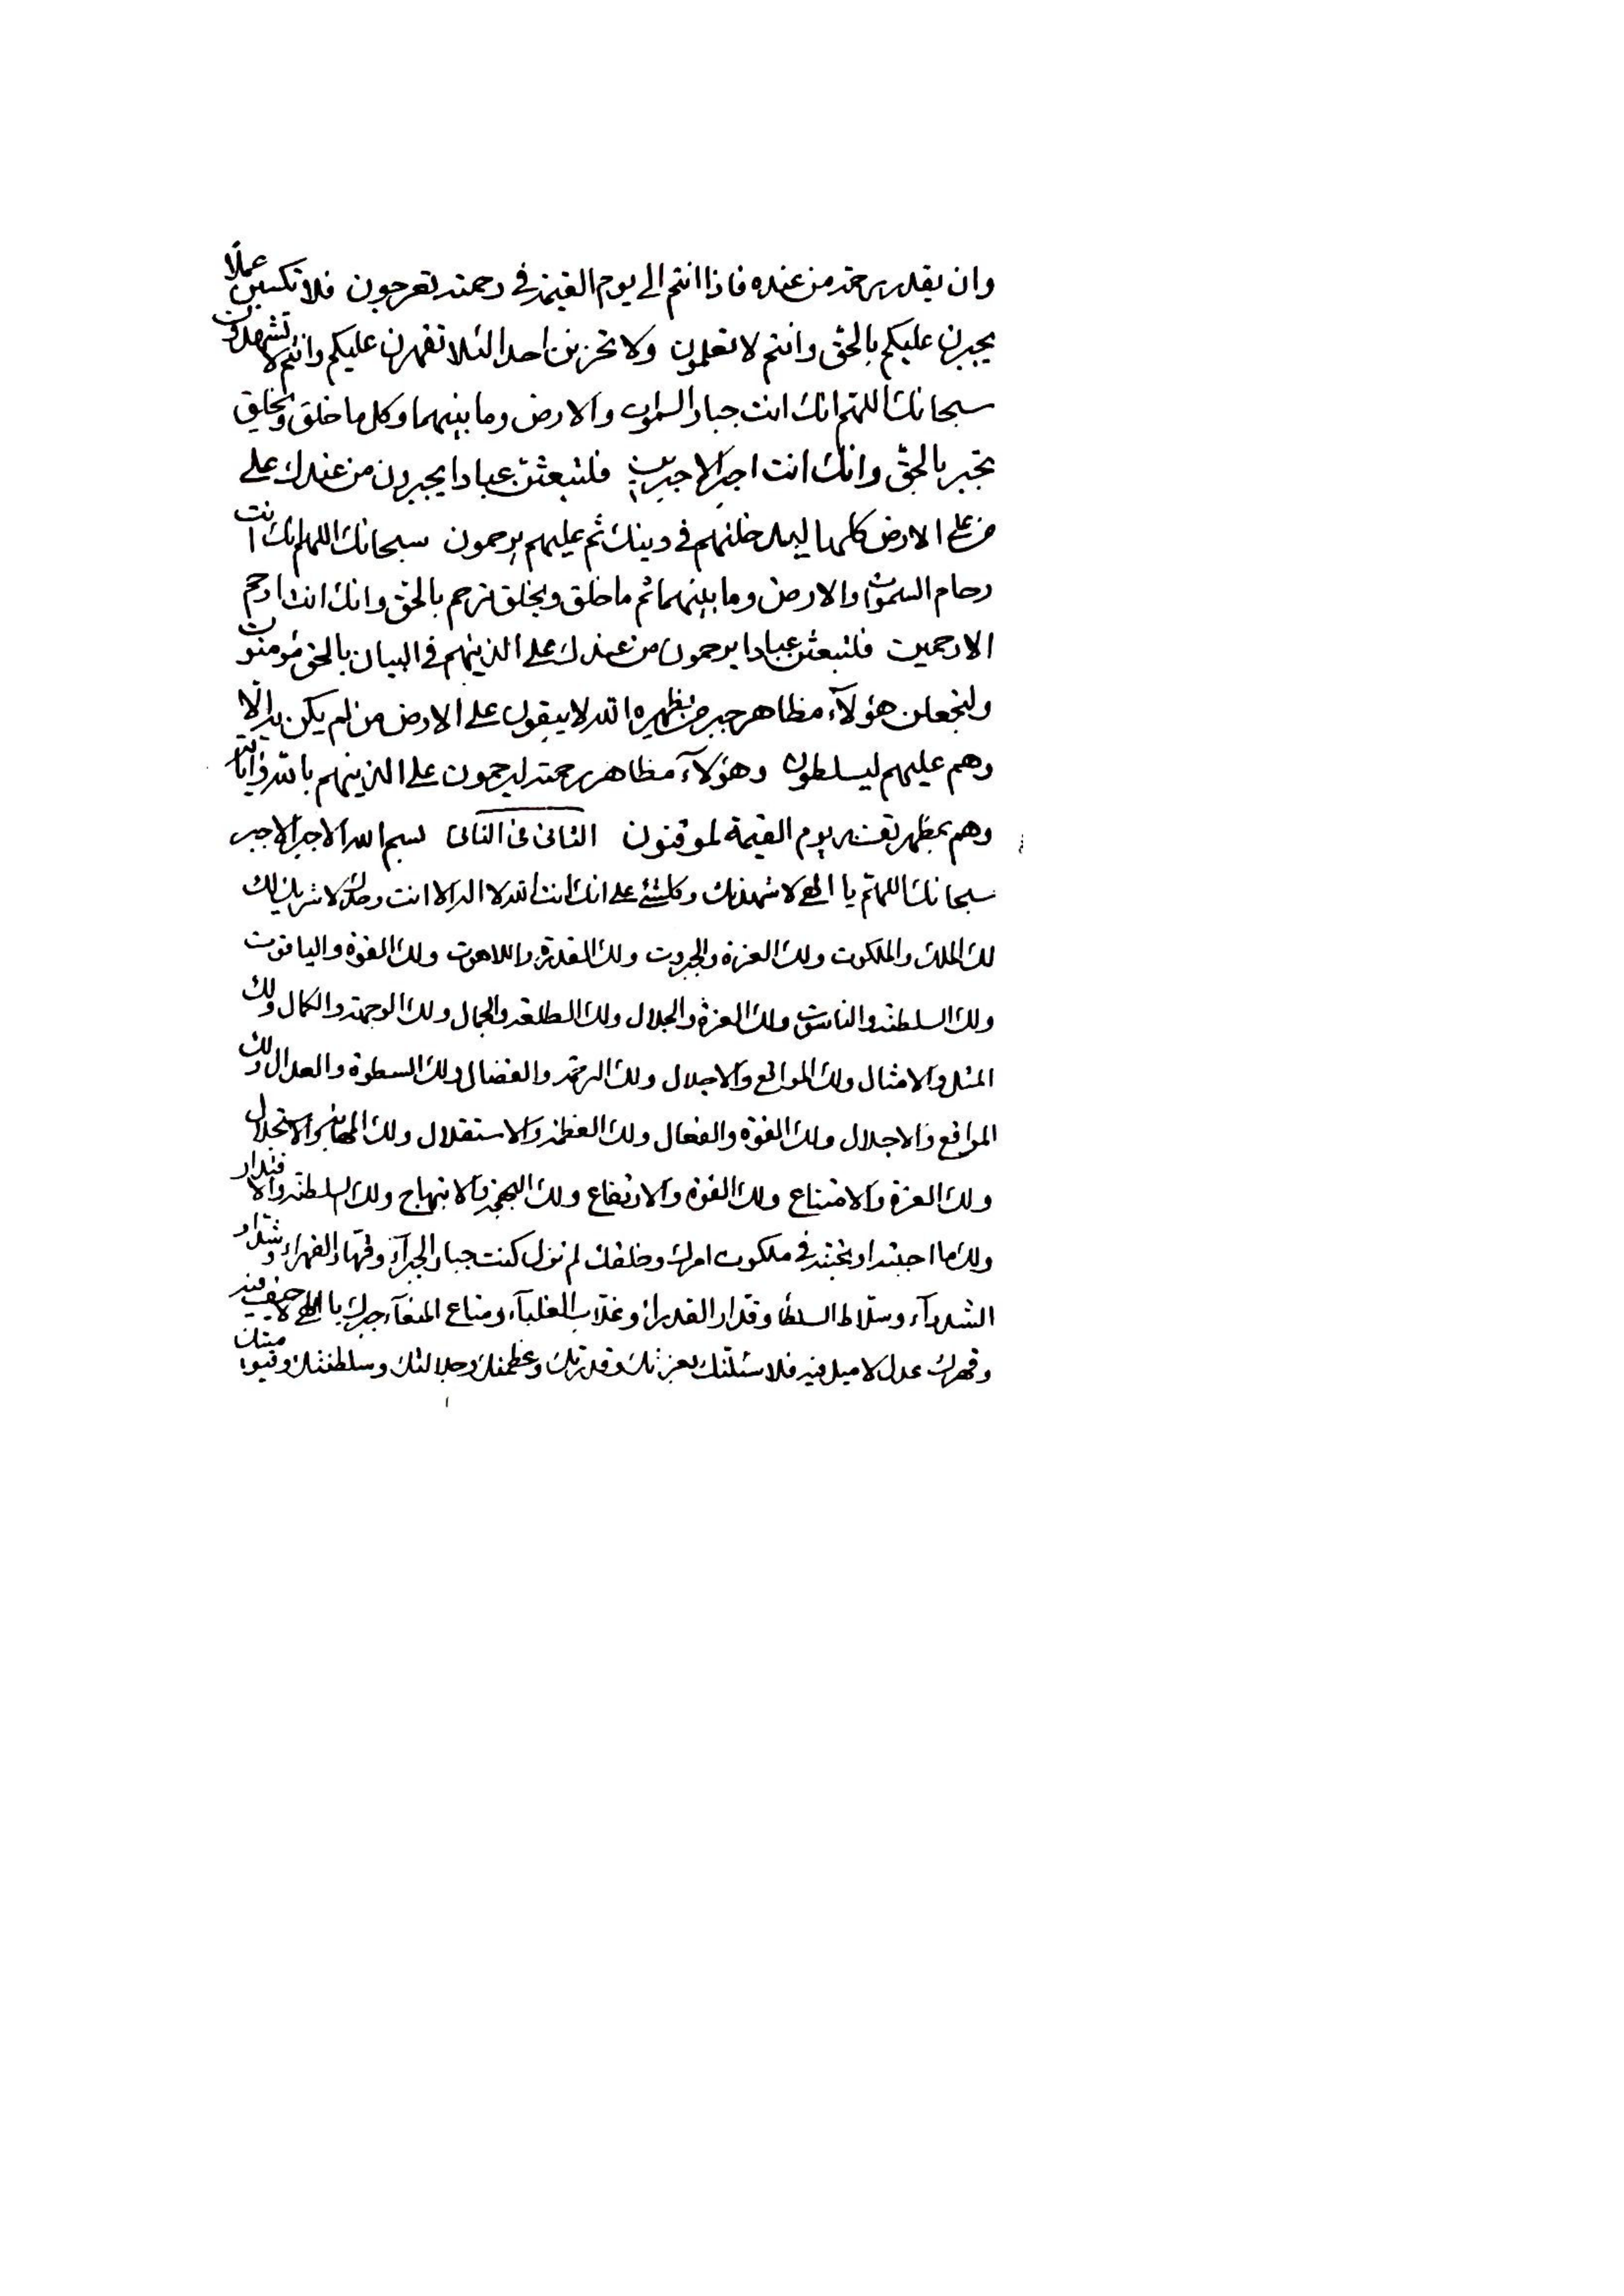 وان يقدر رحمة من عنده فاذا انتم الى يوم القيمة في رحمته تعرجون فلا تكسبن عملا
يجبرن عليكم بالحق وانتم لا تعلمون ولا تحزنن احدا لئلا تقهرن عليكم وانتم لا تشهدون
سبحانك اللهم انك انت جبار السموات والارض وما بينهما وكل ما خلق ويخلق
تجبر بالحق وانك انت اجبر الاجبرين فلتبعثن عبادا يجبرون من عندك على
من على الارض كلها ليدخلنهم في دينك ثم عليهم يرحمون سبحانك اللهم انك انت
رحام السموات والارض وما بينهما ثم ما خلق ويخلق ترحم بالحق وانك انت ارحم
الارحمين فلتبعثن عبادا يرحمون من عندك على الذينهم في البيان بالحق مؤمنون
ولتجعلن هؤلآء مظاهر جبر من يظهره الله لا يبقون على الارض من لم يكن به الا
وهم عليهم ليسلطون وهؤلآء مظاهر رحمته ليرحمون على الذينهم بالله وآياته
وهم بمظهر نفسه يوم القيمة لموقنون الثاني في الثاني بسم الله الاجبر الاجبر
سبحانك اللهم يا الهي لاشهدنك وكلشئ على انك انت الله لا اله الا انت وحدك لا شريك لك
لك الملك والملكوت ولك العزة والجبروت ولك القدرة واللاهوت ولك القوة والياقوت
ولك السلطنة والناسوت ولك العزة والجلال ولك الطلعة والجمال ولك الوجهة والكمال ولك
المثل والامثال ولك المواقع والاجلال ولك الرحمة والفضال ولك السطوة والعدال ولك
المواقع والاجلال ولك القوة والفعال ولك العظمة والاستقلال ولك المهابة والاستجلال
ولك العزة والامتناع ولك القوة والارتفاع ولك البهجة والابتهاج ولك السلطنة والاقتدار
ولك ما احببته او تحببنه في ملكوت امرك وخلقك لم تزل كنت جبار الجبرآء وقهار القهرآء وشداد
الشددآء وسلاط السلطا وقدار القدرآء وغلاب الغلبآء ومناع المنعآء جبرك يا الهي لا حيف فيه
وقهرك عدل لا ميل فيه فلاسئلنك بعزتك وقدرتك وعظمتك وجلالتك وسلطنتك